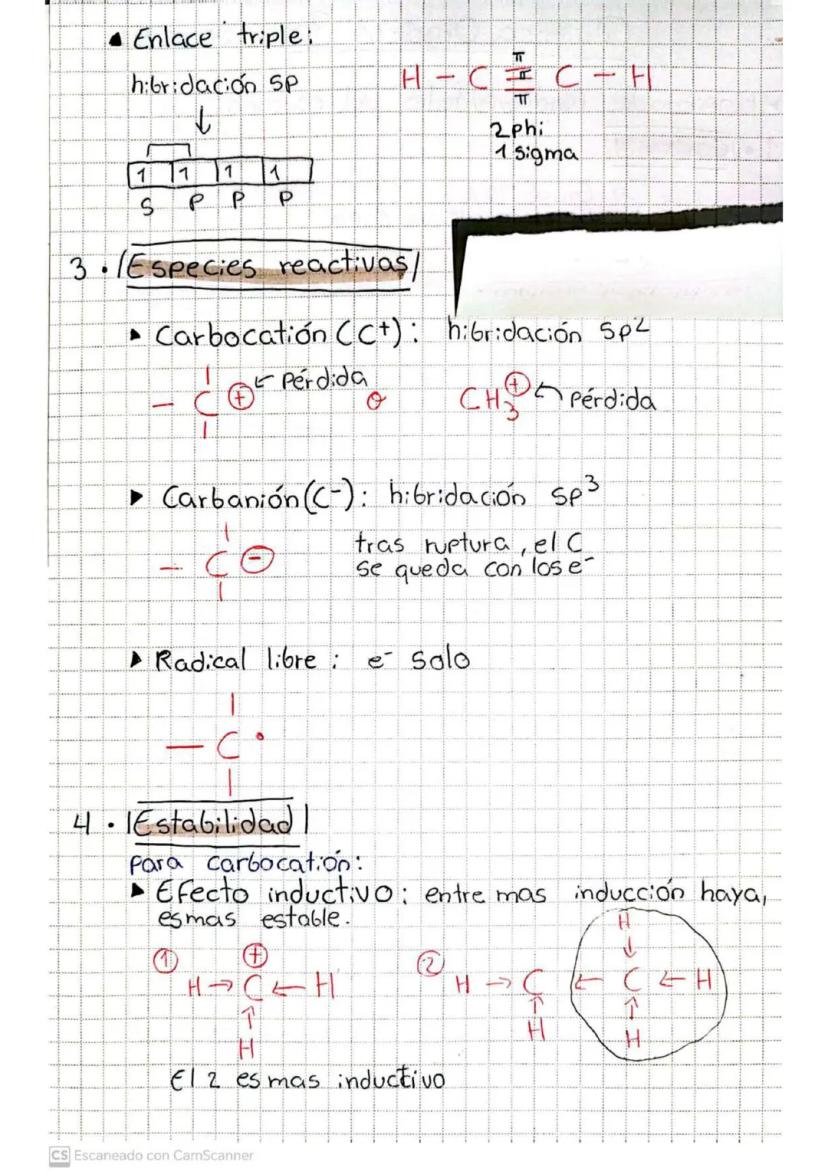 Enlace triple:
hibridación sp
H - C ≡ C - H
π
π
π
2 phi
1 sigma
1 1 1 1
S P P P
3. Especies reactivas
Carbocatión (C+): hibridación sp2
- C + ← Pérdida o CH3 + ← Pérdida
Carbanión (C-): hibridación sp3
- C -
tras ruptura, el C
se queda con los e-
Radical libre: e- solo
- C •
4. Estabilidad
para carbocatión:
Efecto inductivo: entre mas inducción haya,
es mas estable.
① +
H → C ← H
↑
H
② H
↓
H → C ← C ← H
↑ ↑
H H
El 2 es mas inductivo
CS Escaneado con CamScanner